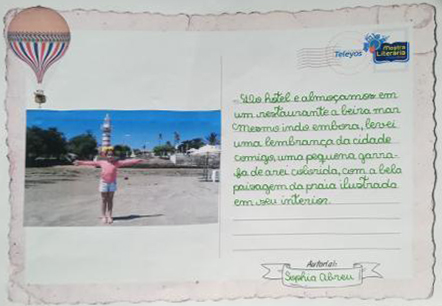 Teleyos
Mostra
Literária
do hotel e almoçamos em
um restaurante a beira mar
Mesmo indo embora, levei
uma lembrança da cidade
comigo, uma pequena garra-
fa de arei colorida, com a bela
paisagem da praia ilustrada
em seu interior.
Autoria:
Sophia Abreu